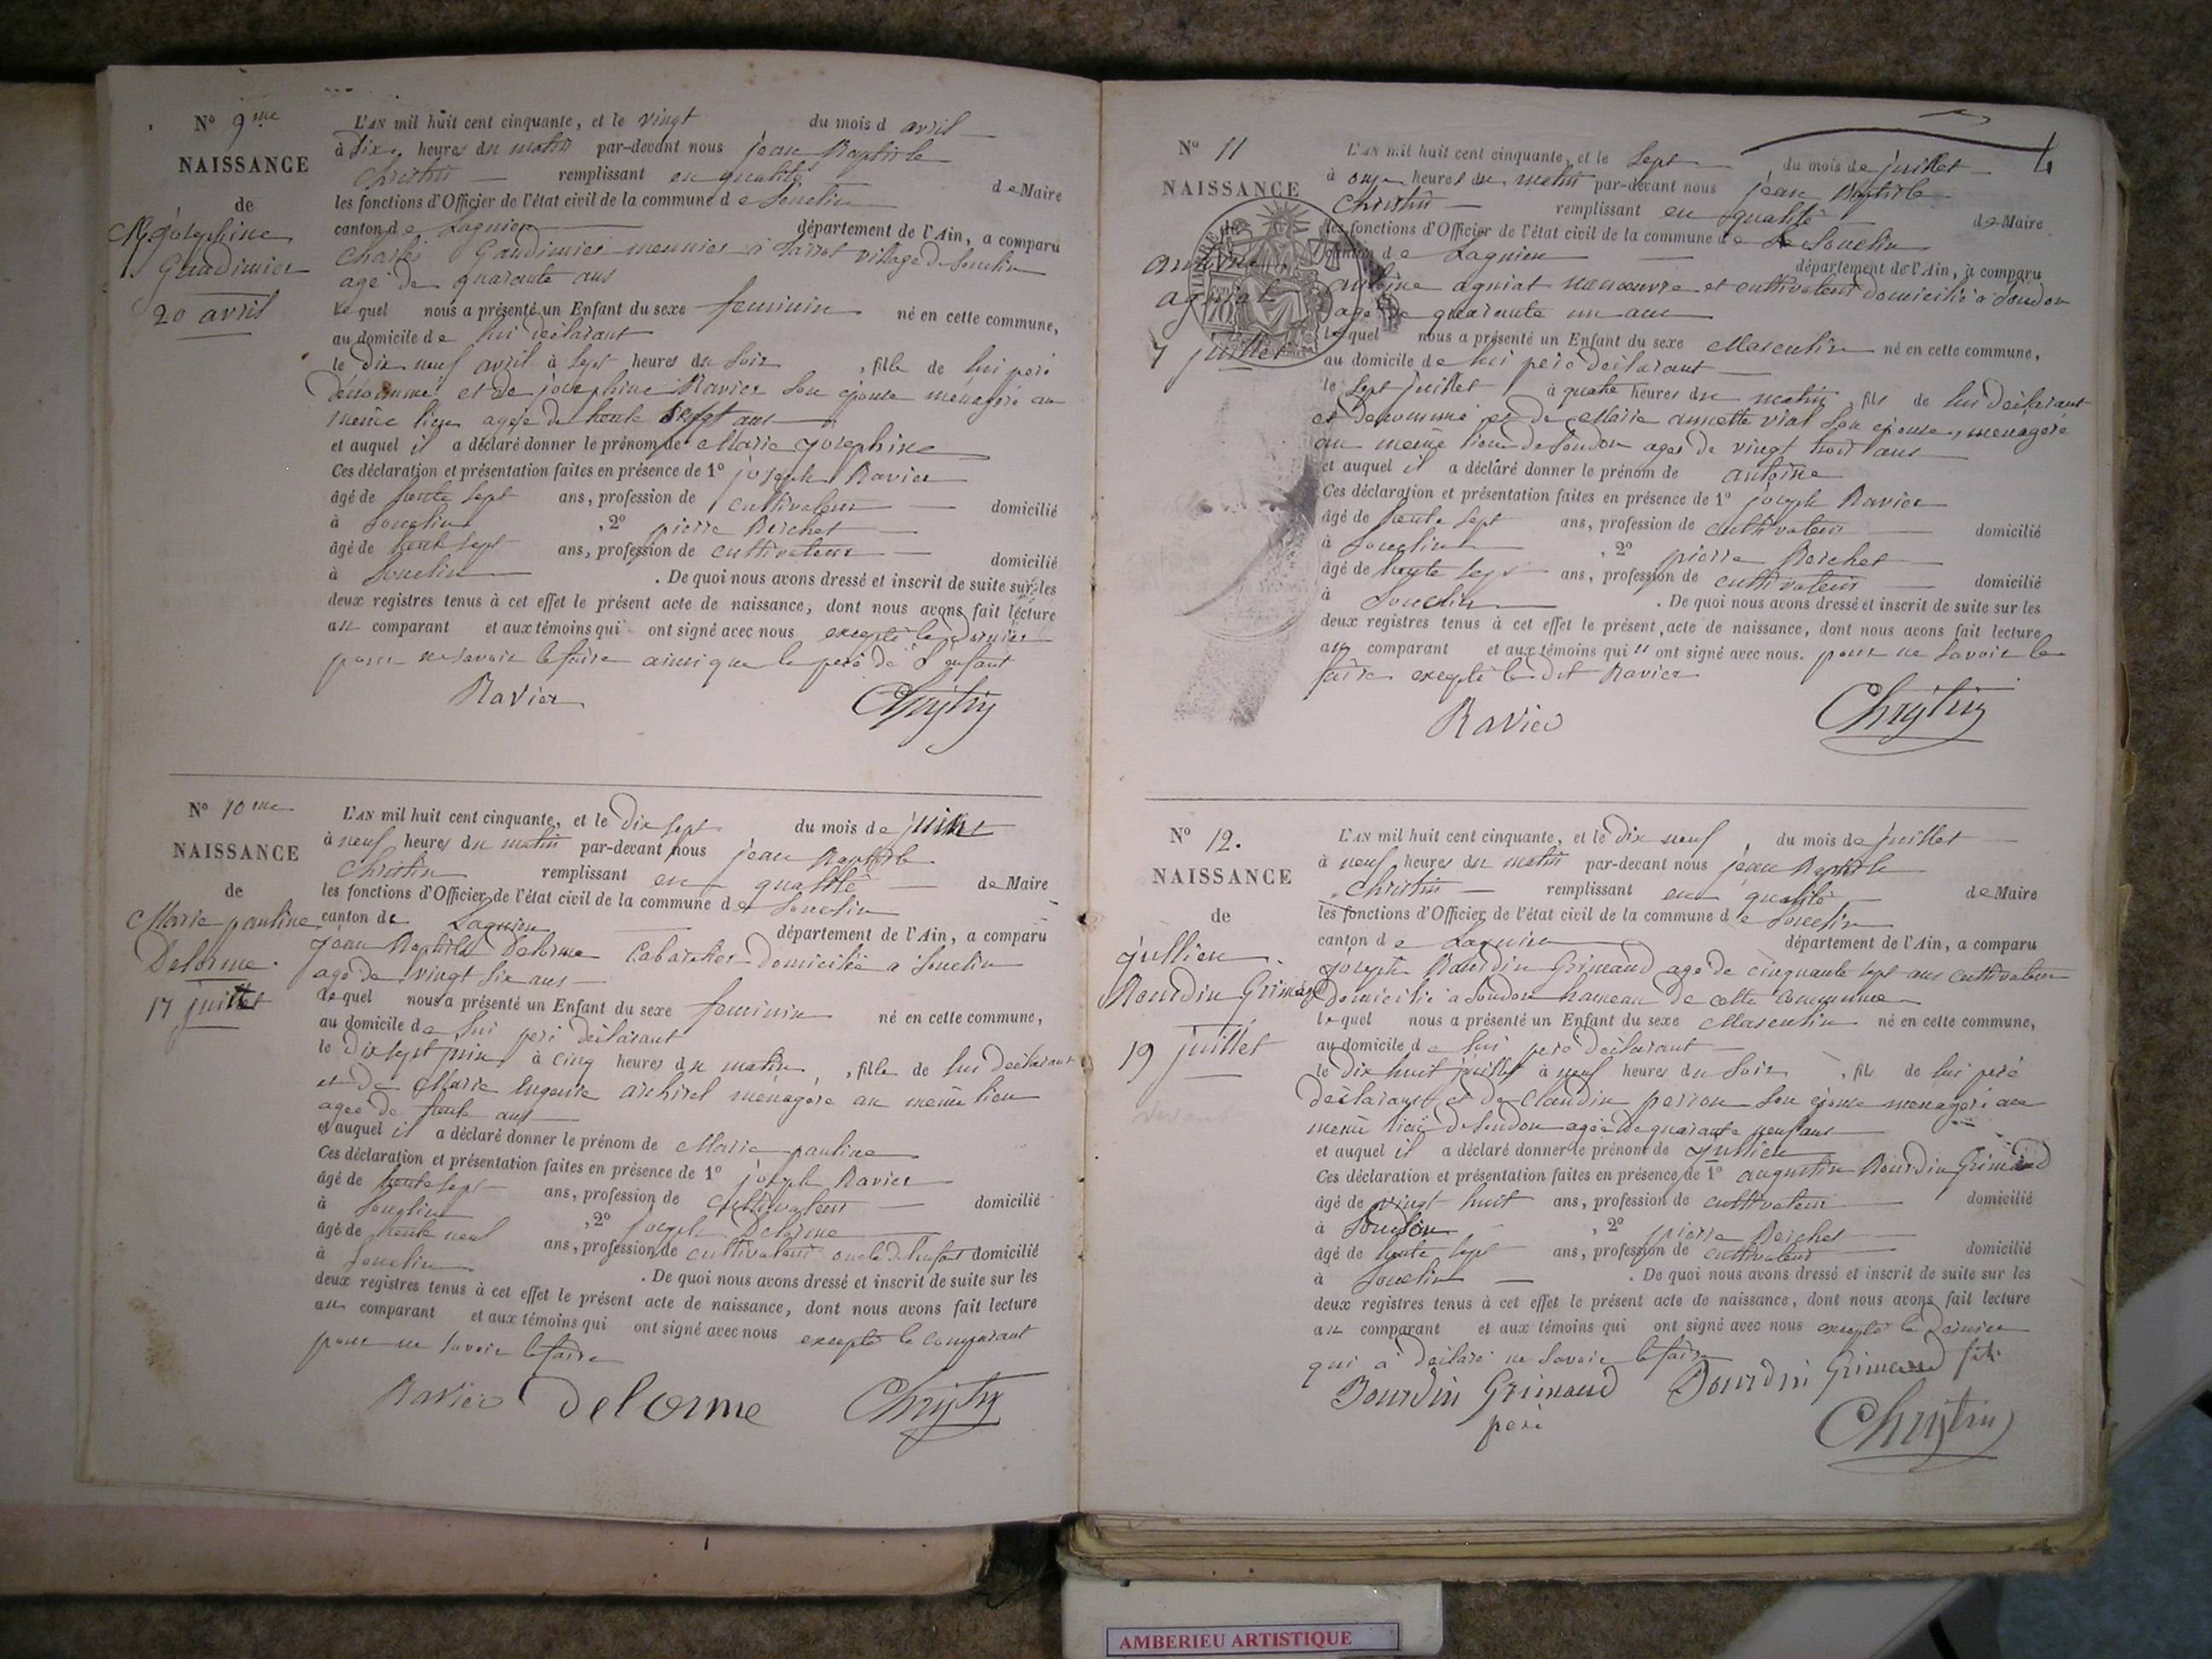 N° 9me
NAISSANCE
de
M. Josephine
Gaudimier
20 avril
L'AN mil huit cent cinquante, et le vingt du mois d avril
à dix heures du matin par-devant nous jean Baptiste
Christin remplissant en qualité de Maire
les fonctions d'Officier de l'état civil de la commune de Souclin
canton de Lagnieu département de l'Ain, a comparu
Charles Gaudimier meunier à village de Souclin
agé de quarante ans
lequel nous a présenté un Enfant du sexe feminin né en cette commune,
au domicile de lui déclarant
le dix neuf avril à Sept heures du Soir, fille de lui peré
denommé et de josephine Ravier Son epouse menagère au
meme lieu agée de trente ans
et auquel il a déclaré donner le prénom de Marie Josephine
Ces déclaration et présentation faites en présence de 1° joseph Ravier
âgé de trente Sept ans, profession de cultivateur domicilié
à Souclin, 2° pierre Reichet
âgé de trente Sept ans, profession de cultivateur domicilié
à Souclin. De quoi nous avons dressé et inscrit de suite sur les
deux registres tenus à cet effet le présent acte de naissance, dont nous avons fait lecture
au comparant et aux témoins qui ont signé avec nous excepté le dernier
pour ne savoir le faire ainsi que le peré de l'enfant
Ravier Christin
N° 10me
NAISSANCE
de
Marie pauline
Delorme.
17
L'AN mil huit cent cinquante, et le Dix Sept du mois de juin
à neuf heures du matin par-devant nous jean Baptiste
Christin remplissant en qualité de Maire
les fonctions d'Officier de l'état civil de la commune de Souclin
canton de Lagnieu département de l'Ain, a comparu
jean Baptiste Delorme Cabaretier Domicilié a Souclin
agé de vingt Six ans
lequel nous a présenté un Enfant du sexe feminin né en cette commune,
au domicile de lui peré declarant
le Dix Sept juin à cinq heures du matin, fille de lui declarant
et de Marie menagère au même lieu
agée de trente ans
et auquel il a déclaré donner le prénom de Marie pauline
Ces déclaration et présentation faites en présence de 1° joseph Ravier
âgé de trente Sept ans, profession de cultivateur domicilié
à Souclin, 2° joseph Delorme
âgé de trente neuf ans, profession de cultivateur oncle de l'enfant domicilié
à Souclin. De quoi nous avons dressé et inscrit de suite sur les
deux registres tenus à cet effet le présent acte de naissance, dont nous avons fait lecture
au comparant et aux témoins qui ont signé avec nous excepté le comparant
pour ne savoir le faire
Ravier Delorme Christin
4
N° 11
NAISSANCE
antoine
agniat
7 juillet
L'AN mil huit cent cinquante, et le Sept du mois de juillet
à onze heures du matin par-devant nous jean Baptiste
Christin remplissant en qualité de Maire
les fonctions d'Officier de l'état civil de la commune de Souclin
canton de Lagnieu département de l'Ain, a comparu
antoine agniat manœuvre et cultivateur domicilié à Soudon
agé de quarante un ans
lequel nous a présenté un Enfant du sexe Masculin né en cette commune,
au domicile de lui peré déclarant
le Sept juillet à quatre heures du matin, fils de lui déclarant
et denommé et de Marie annette vial Son épouse, menagere
au même lieu de Soudon agée de vingt ans
et auquel il a déclaré donner le prénom de antoine
Ces déclaration et présentation faites en présence de 1° joseph Ravier
âgé de trente Sept ans, profession de cultivateur domicilié
à Souclin, 2° pierre Reichet
âgé de trente Sept ans, profession de cultivateur domicilié
à Souclin. De quoi nous avons dressé et inscrit de suite sur les
deux registres tenus à cet effet le présent, acte de naissance, dont nous avons fait lecture
au comparant et aux témoins qui n ont signé avec nous. pour ne Savoir le
faire excepté le dit Ravier
Ravier Christin
N° 12.
NAISSANCE
de
jullien
Bourdin Grimaud
19 juillet
L'AN mil huit cent cinquante, et le Dix neuf du mois de juillet
à neuf heures du matin par-devant nous jean Baptiste
Christin remplissant en qualité de Maire
les fonctions d'Officier de l'état civil de la commune de Souclin
canton de Lagnieu département de l'Ain, a comparu
joseph Bourdin Grimaud agé de cinquante Sept ans cultivateur
Domicilié a Soudon hameau de cette Commune
lequel nous a présenté un Enfant du sexe Masculin né en cette commune,
au domicile de lui peré déclarant
le Dix huit juillet à neuf heures du Soir, fils de lui peré
déclarant et de Claudin perron Son épouse menagère au
même lieu de Soudon agée de quarante neuf ans
et auquel il a déclaré donner le prénom de jullien
Ces déclaration et présentation faites en présence de 1° augustin Bourdin Grimaud
âgé de vingt huit ans, profession de cultivateur domicilié
à Soudon, 2° pierre Reichet
âgé de trente Sept ans, profession de cultivateur domicilié
à Souclin. De quoi nous avons dressé et inscrit de suite sur les
deux registres tenus à cet effet le présent acte de naissance, dont nous avons fait lecture
au comparant et aux témoins qui ont signé avec nous excepté le Dernier
qui a déclaré ne Savoir le faire
Bourdin Grimaud Bourdin Grimaud fils
peré Christin
AMBERIEU ARTISTIQUE